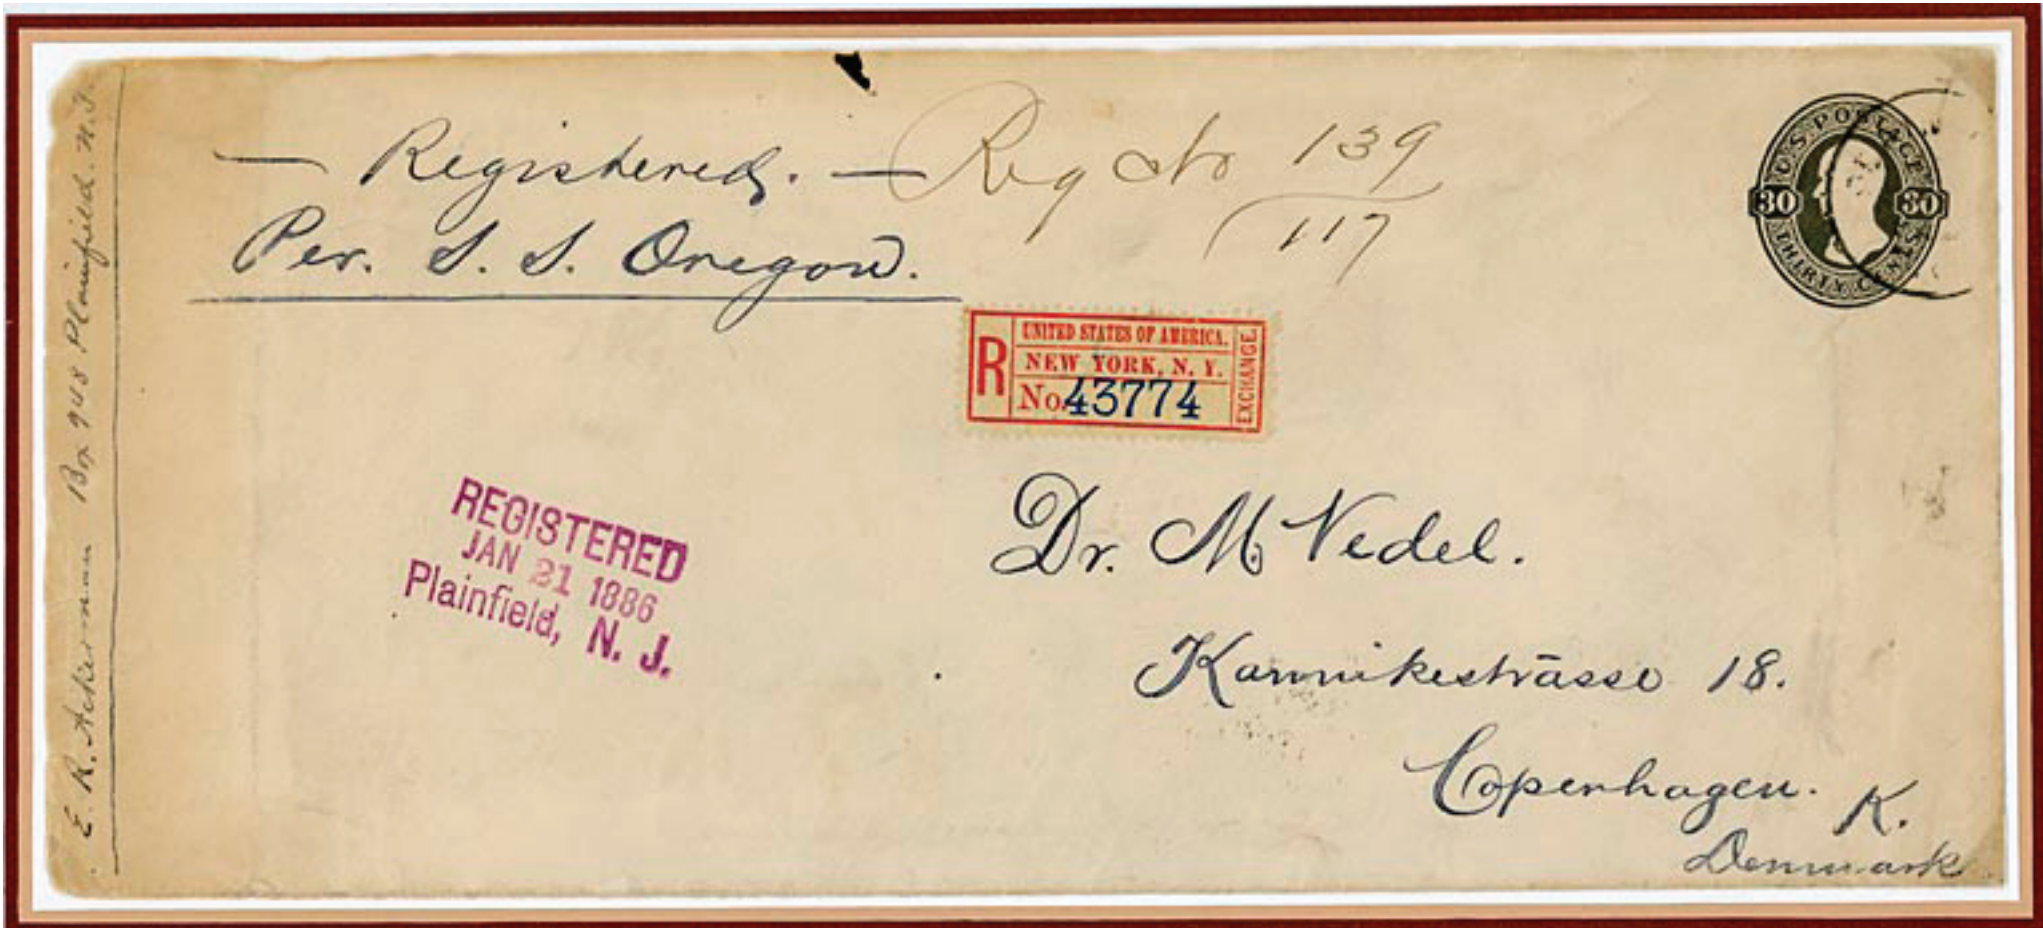 E. R. Ackerman Box 948 Plainfield. N. J.
— Registered. — Reg No 139
117
Per. S. S. Oregon.
U.S. POSTAGE
30 30
THIRTY CENTS
R
UNITED STATES OF AMERICA.
NEW YORK, N. Y.
No. 43774
EXCHANGE.
REGISTERED
JAN 21 1886
Plainfield, N. J.
Dr. M Vedel.
Kannikestrasse 18.
Copenhagen. K.
Denmark